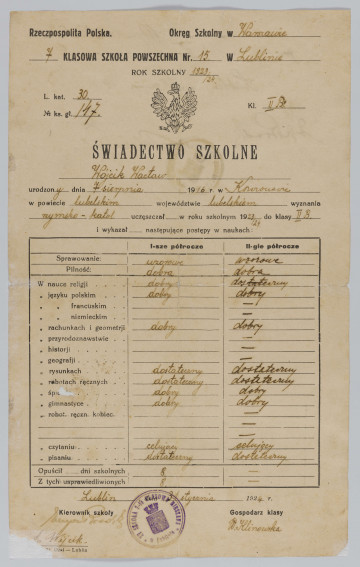 Rzeczpospolita Polska. Okręg Szkolny w Warszawie
7 KLASOWA SZKOŁA POWSZECHNA Nr. 15 w Lublinie
ROK SZKOLNY 1923/24
L. kat. 30.
№ ks. gł. 147 Kl. II B
ŚWIADECTWO SZKOLNE
Wójcik Wacław
urodzony dnia 7 sierpnia 1916 r. w
w powiecie lubelskim województwie lubelskiem wyznania
rzymsko-katol uczęszczał w roku szkolnym 1923/24 do klasy II B.
i wykazał następujące postępy w naukach:
I-sze półrocze II-gie półrocze
Sprawowanie: wzorowe wzorowe
Pilność: dobra dobra
W nauce religji dobry dostateczny
„ języku polskim dobry dobry
„ „ francuskim —
„ „ niemieckim —
„ rachunkach i geometrji dobry dobry
„ przyrodoznawstwie —
„ historji —
„ geografji —
„ rysunkach dostateczny dostateczny
„ robotach ręcznych dostateczny dostateczny
„ dobry dobry
„ gimnastyce dobry dobry
„ robot. ręczn. kobiec. —
„ czytaniu celujący celujący
„ pisaniu dostateczny dostateczny
Opuścił dni szkolnych 8 —
Z tych usprawiedliwionych 8 —
Lublin stycznia 1924 r.
Kierownik szkoły Gospodarz klasy